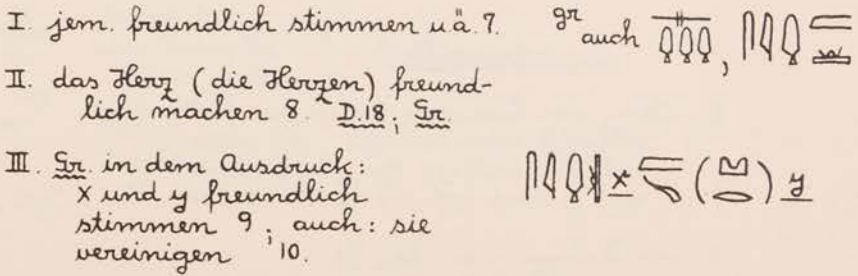 I. jem. freundlich stimmen u.ä. 7. gr auch
II. das Herz (die Herzen) freund-
lich machen 8. D.18; Gr.
III. Gr. in dem Ausdruck:
x und y freundlich
stimmen 9; auch: sie
vereinigen 10.
x ( ) y